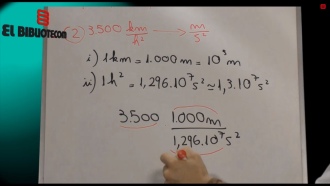 EL BIBUOTECOM
2) 3500 km/h² → m/s²
i) 1km = 1.000m = 10³m
ii) 1h² = 1,296.10⁷s² ≃ 1,3.10⁷s²
3.500 1.000m
1,296.10⁷s²